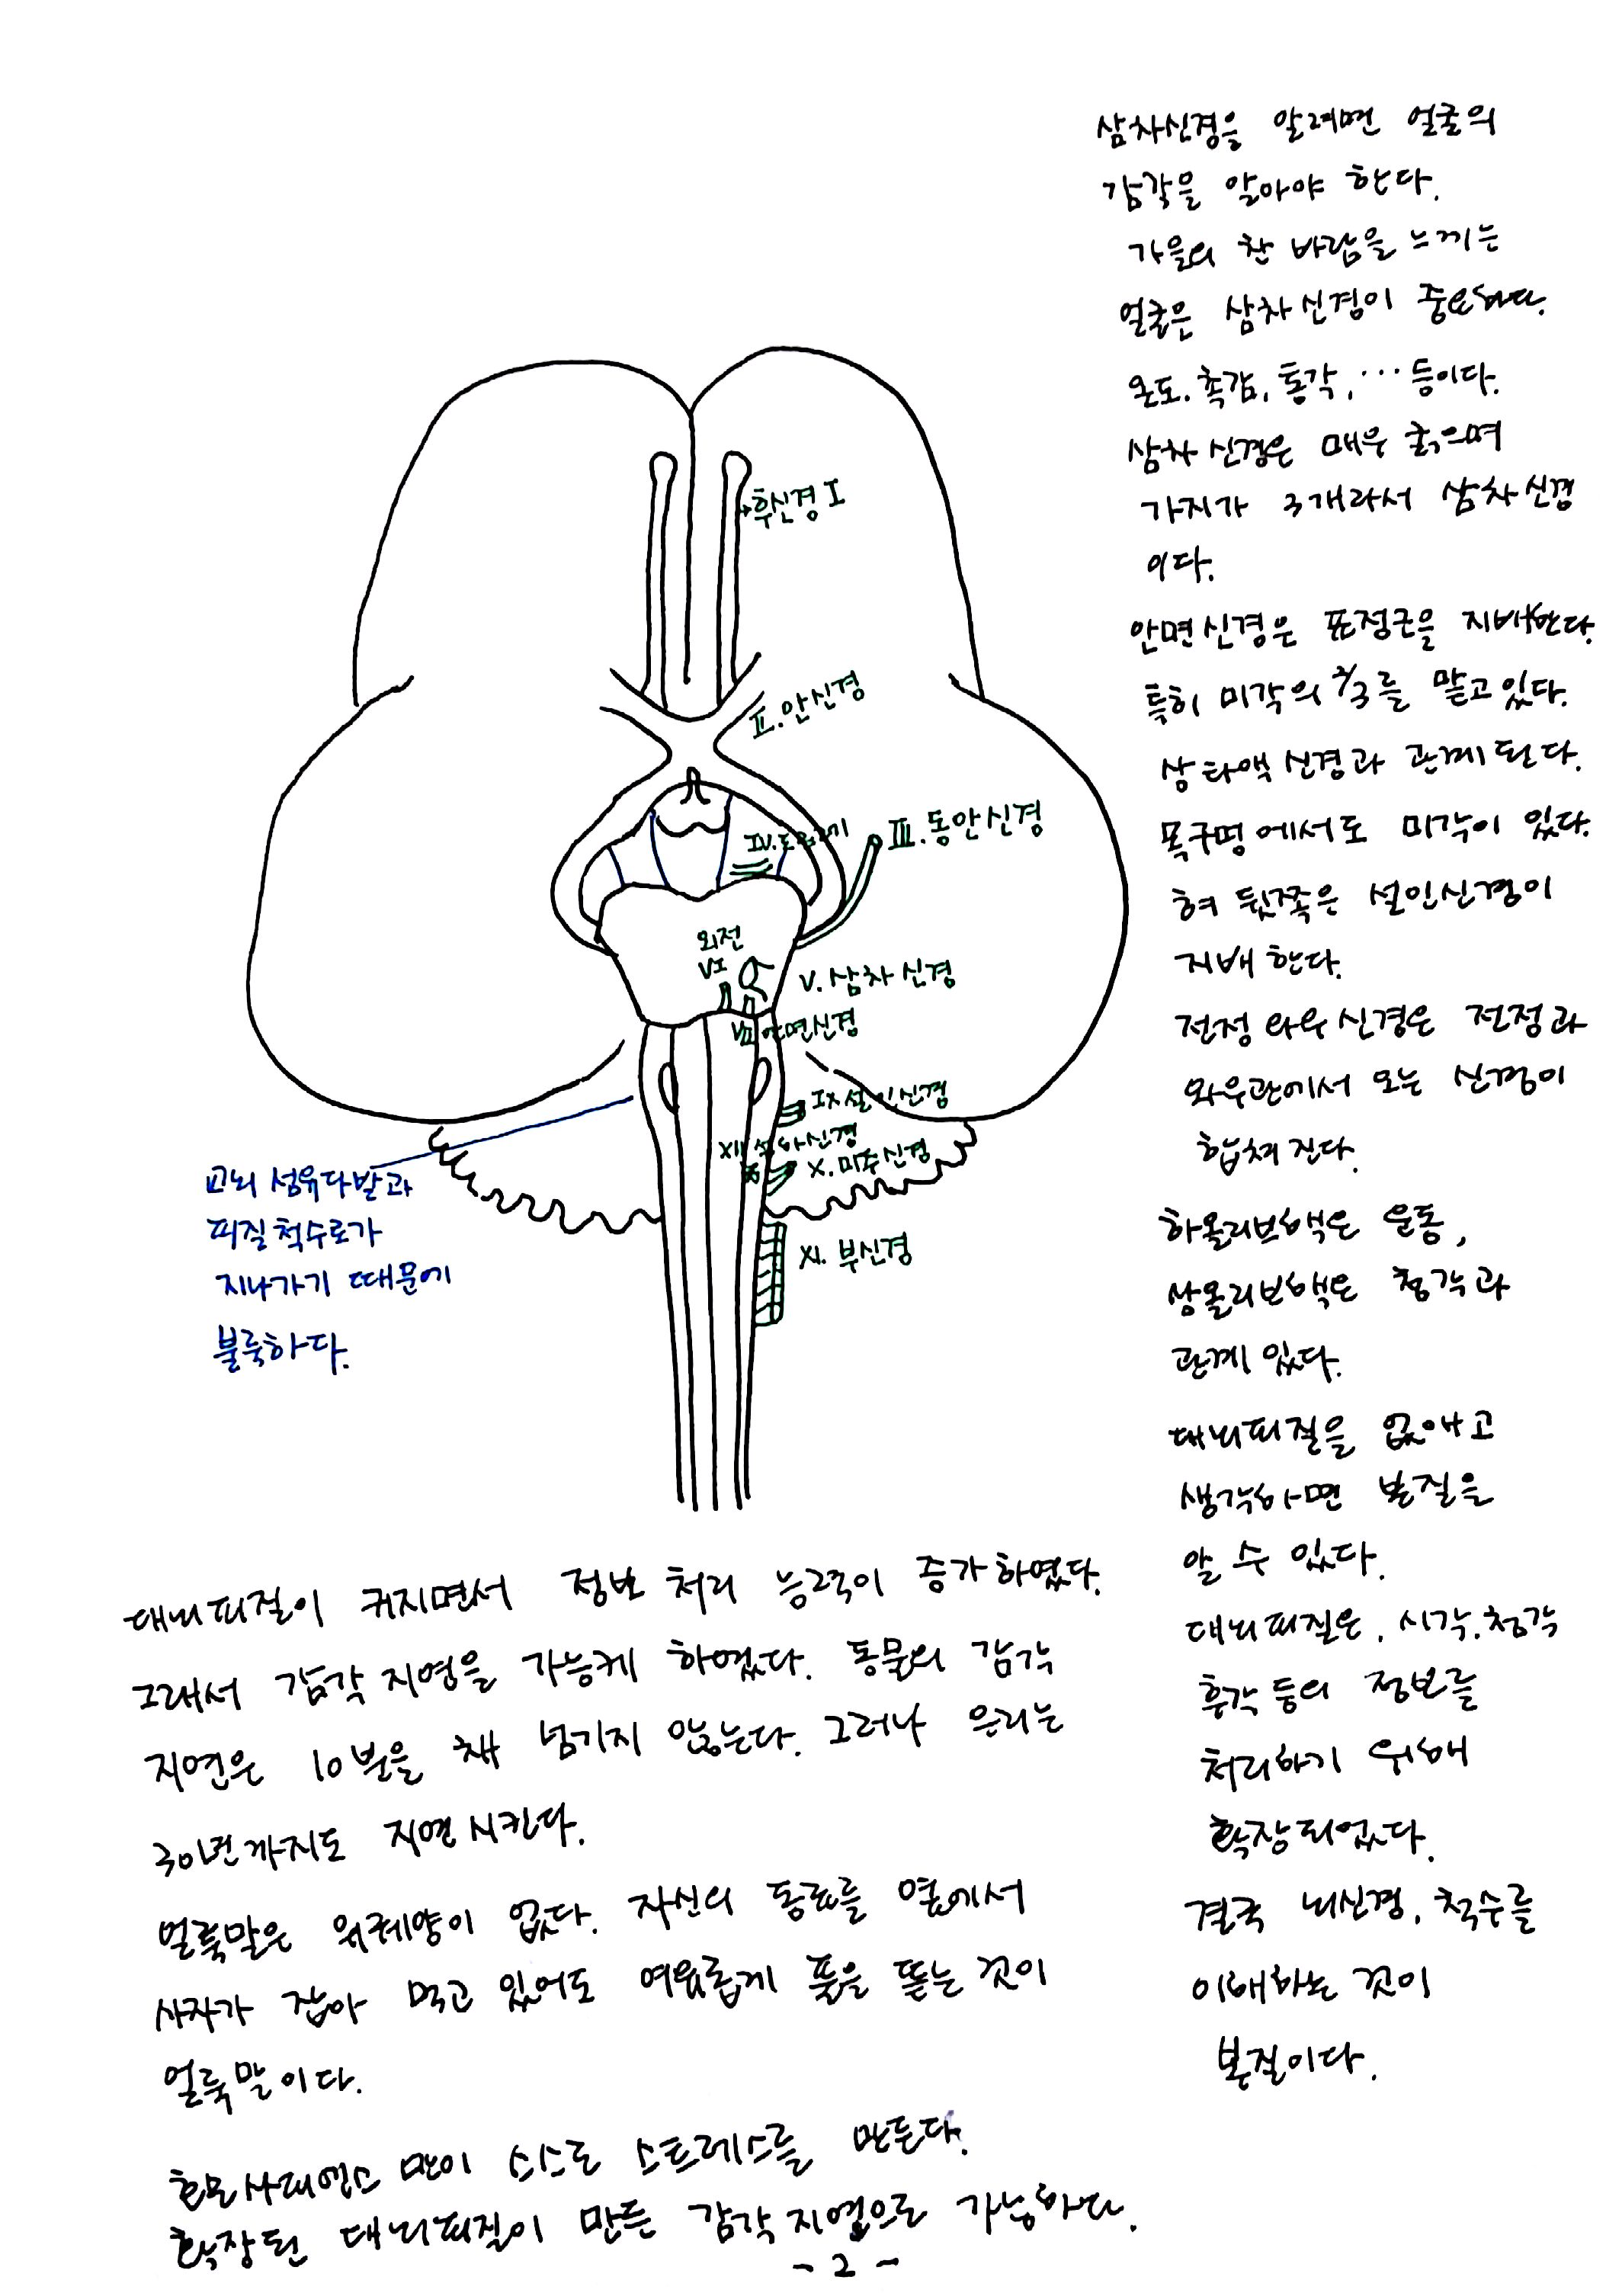 삼차신경을 알려면 얼굴의
감각을 알아야 한다.
가을의 찬 바람을 느끼는
얼굴은 삼차신경이 중요하다.
온도. 촉감, 통각, … 등이다.
삼차신경은 매우 굵으며
가지가 3개라서 삼차신경
이다.
안면신경은 표정근을 지배한다.
특히 미각의 2/3를 맡고 있다.
상타액신경과 관계된다.
목구멍에서도 미각이 있다.
혀 뒷쪽은 설인신경이
지배한다.
전정와우신경은 전정과
와우관에서 오는 신경이
합쳐진다.
하올리브핵은 운동,
상올리브핵은 청각과
관계 있다.
대뇌피질을 없애고
생각하면 본질을
알 수 있다.
대뇌피질은, 시각, 청각
후각 등의 정보를
처리하기 위해
확장되었다.
결국 뇌신경, 척수를
이해하는 것이
본질이다.
후신경 I
II. 안신경
III. 동안신경
IV.
외전
VI
V. 삼차신경
VII 안면신경
IX 설인신경
XII 설하신경
X. 미주신경
XI. 부신경
교뇌 섬유다발과
피질척수로가
지나가기 때문에
불룩하다.
대뇌피질이 커지면서 정보 처리 능력이 증가하였다.
그래서 감각 지연을 가능케 하였다. 동물의 감각
지연은 10분을 채 넘기지 않는다. 그러나 우리는
30년까지도 지연시킨다.
얼룩말은 위궤양이 없다. 자신의 동료를 옆에서
사자가 잡아 먹고 있어도 여유롭게 풀을 뜯는 것이
얼룩말이다.
호모사피엔스만이 스스로 스트레스를 만든다.
확장된 대뇌피질이 만든 감각지연으로 가능하다.
- 2 -